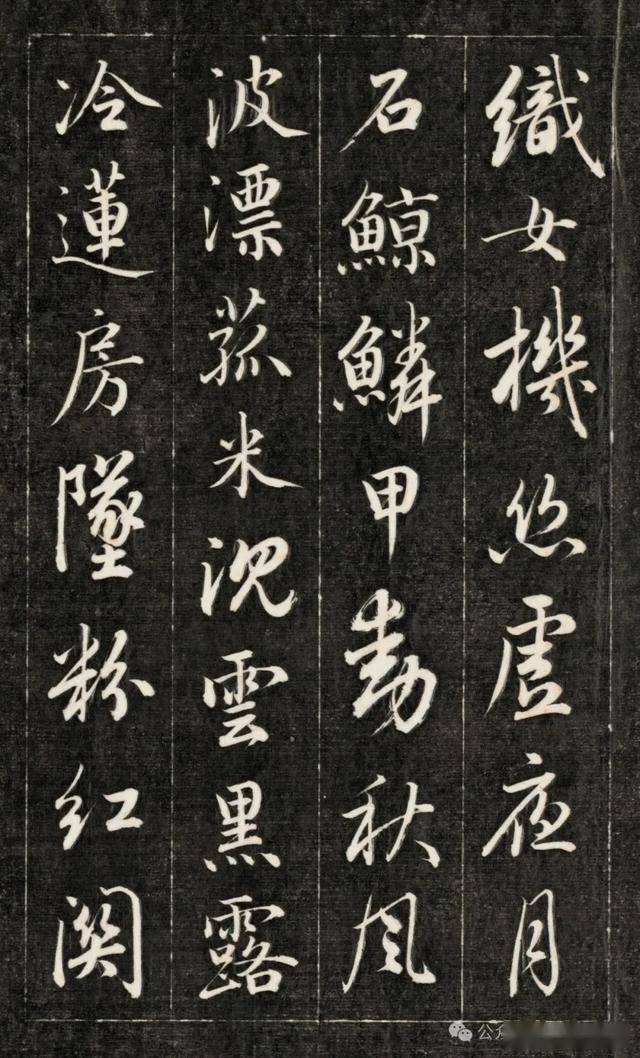 織女機丝虛夜月
石鯨鱗甲動秋風
波漂菰米沈雲黑露
冷蓮房墜粉紅關